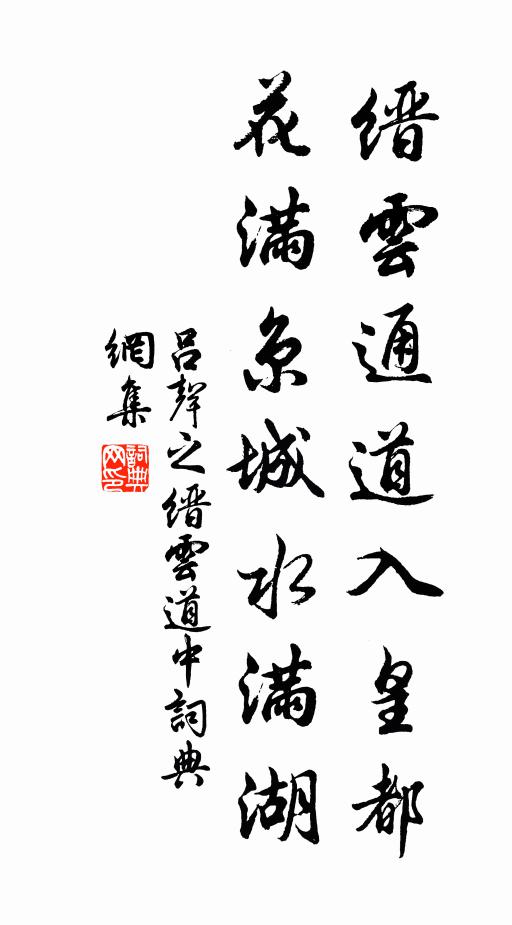 缙雲通道入皇都
花滿京城水滿湖
吕聲之缙雲道中詞典
網集
詞典網印